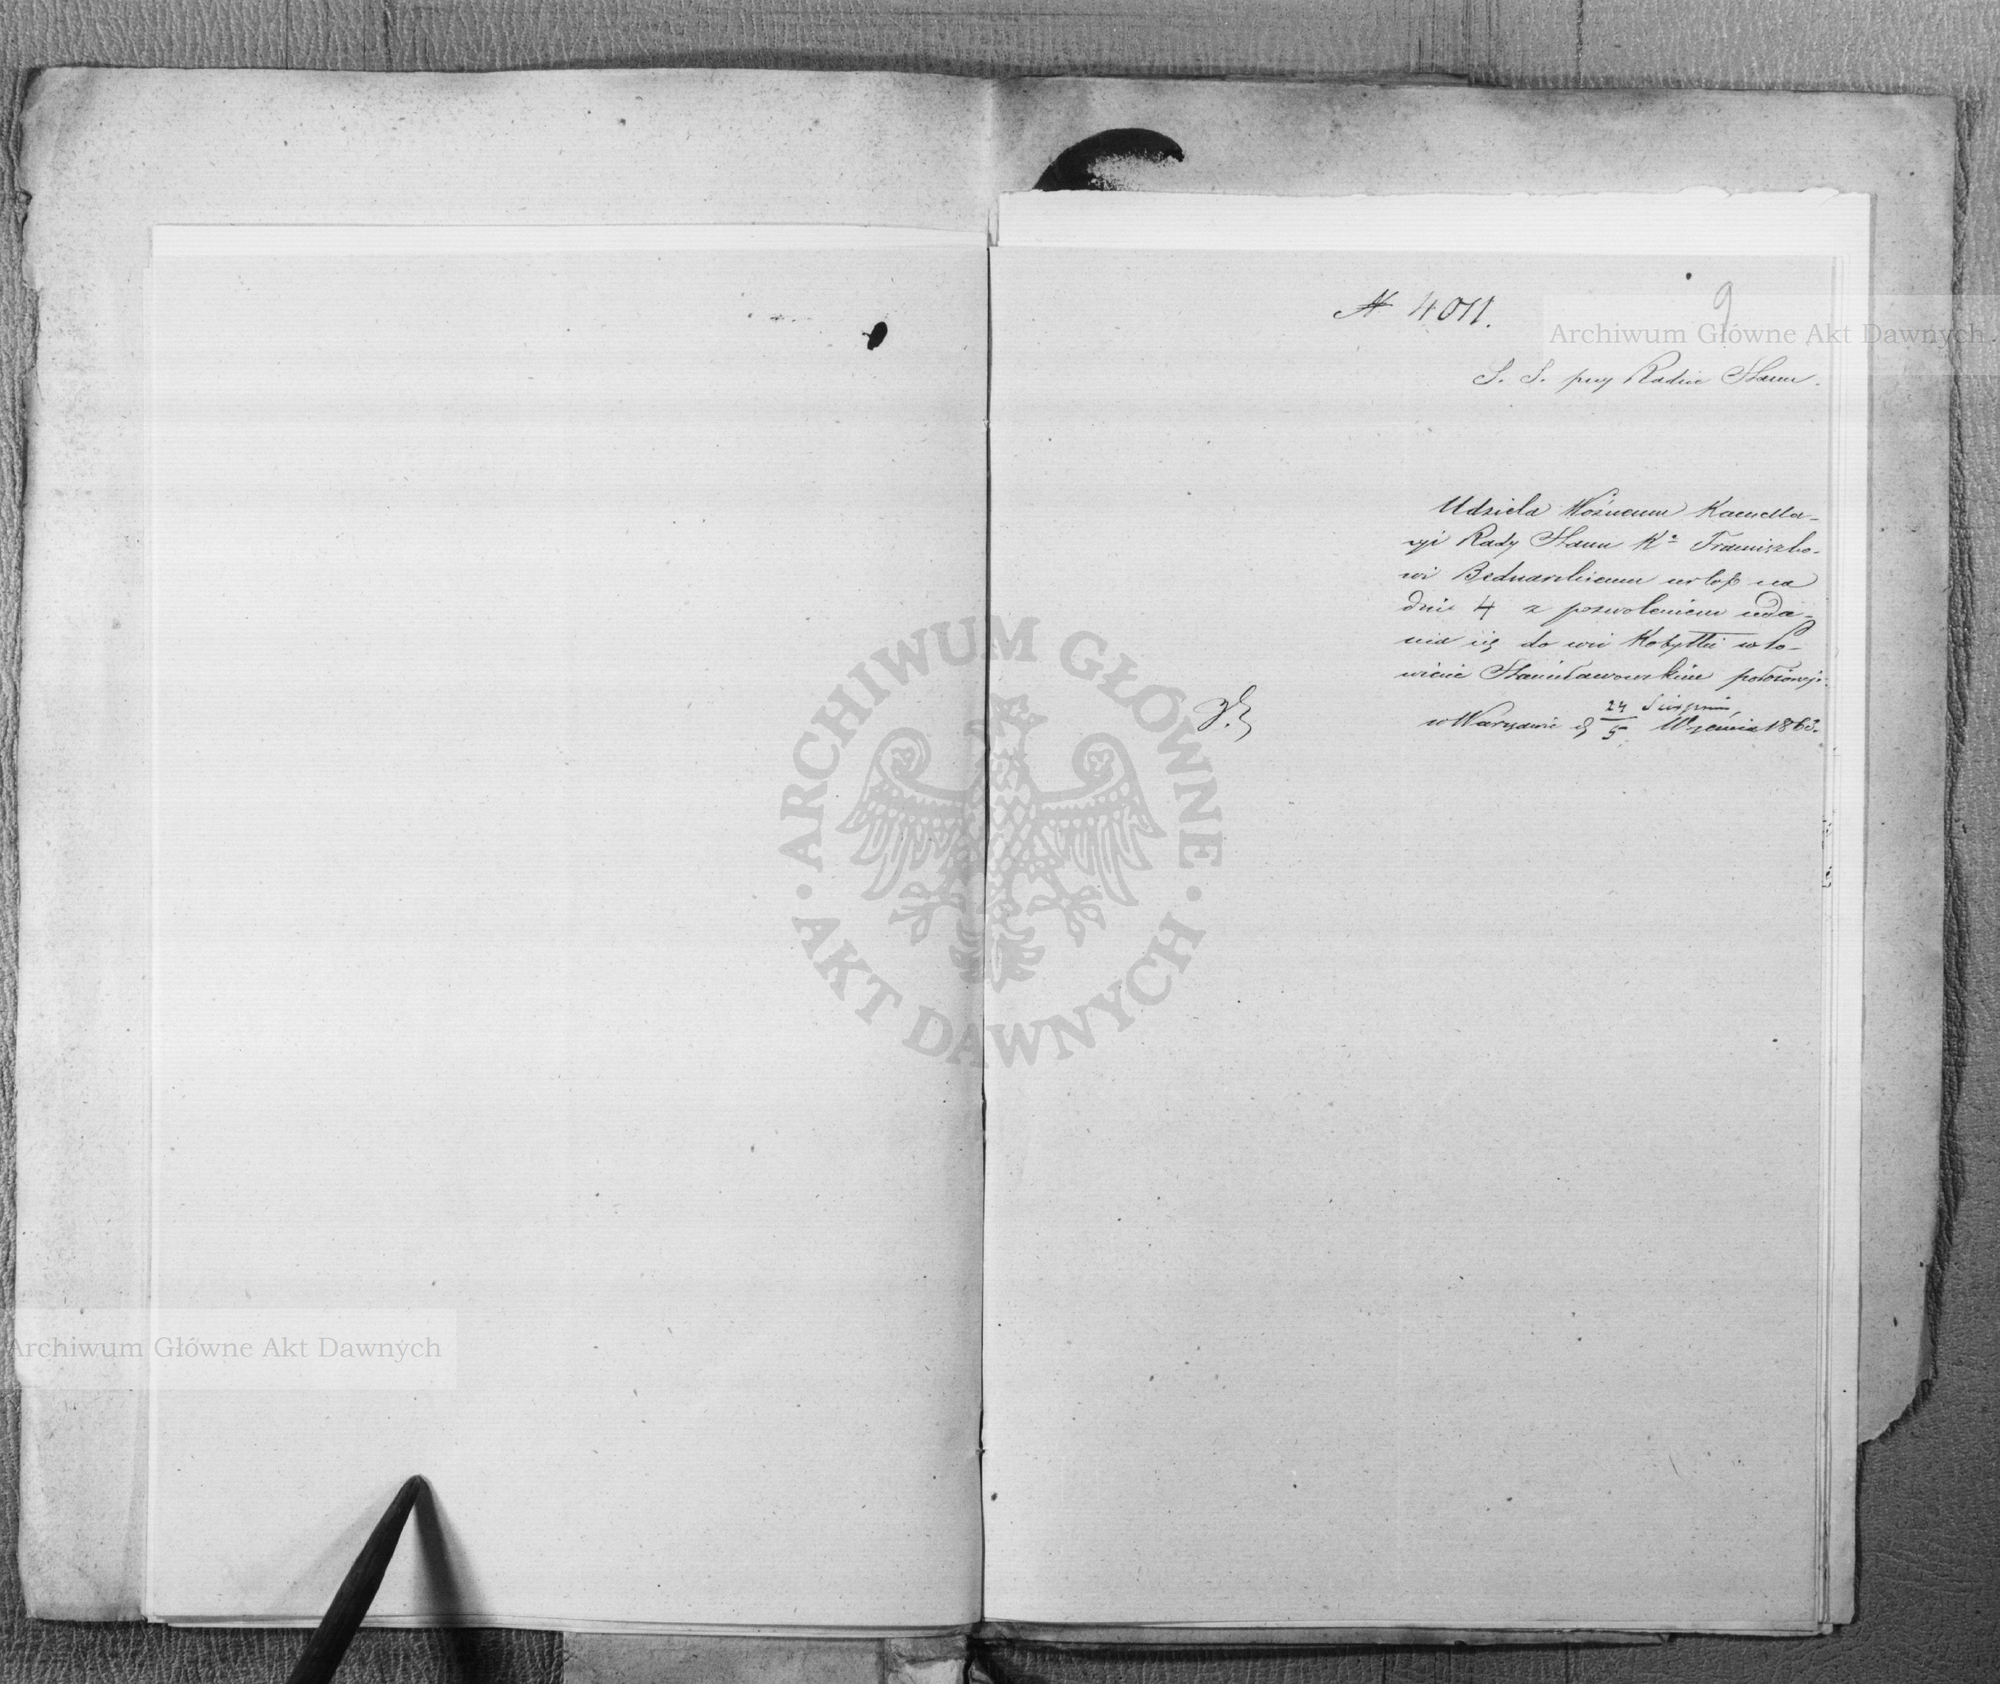 № 4011.
9
S. S. przy Radzie Stanu.
Udziela Woźnemu Kancella-
ryi Rady Stanu Kr Franciszko-
wi Bednarskiemu urlop na
dni 4 z pozwoleniem uda-
nia się do wsi Kobyłki w Po-
wiecie Stanisławowskim położonej.
w Warszawie d 24 Sierpnia / 5 Września 1863.
Archiwum Główne Akt Dawnych
ARCHIWUM GŁÓWNE · AKT DAWNYCH ·
Archiwum Główne Akt Dawnych